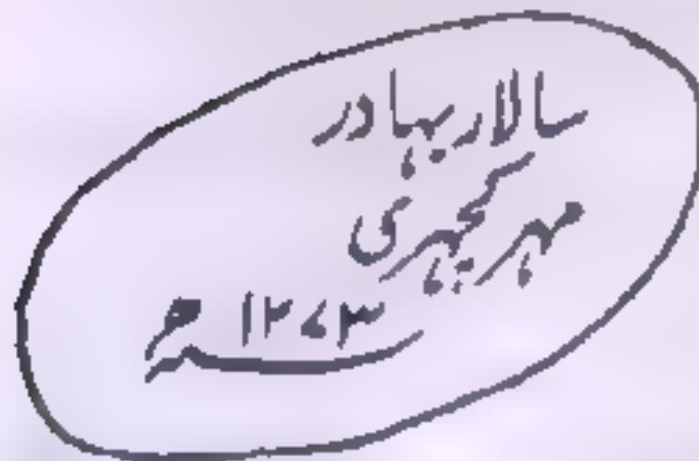 سالار بہادر
مہر کچہری
۱۲۷۳ ھ